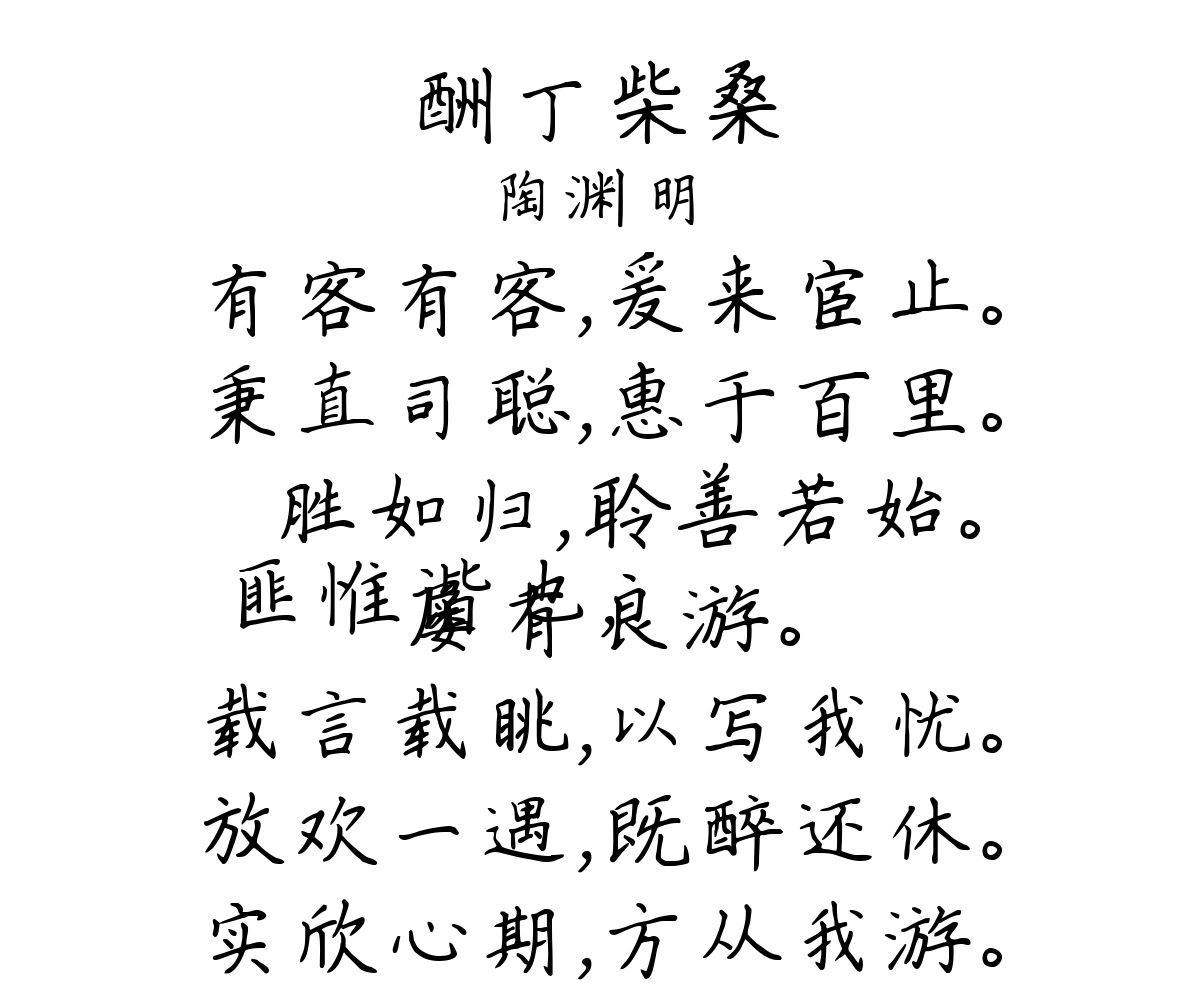 酬丁柴桑
陶渊明
有客有客,爰来宦止。
秉直司聪,惠于百里。
胜如归,聆善若始。
匪惟也,有良游。
载言载眺,以写我忧。
放欢一遇,既醉还休。
实欣心期,方从我游。